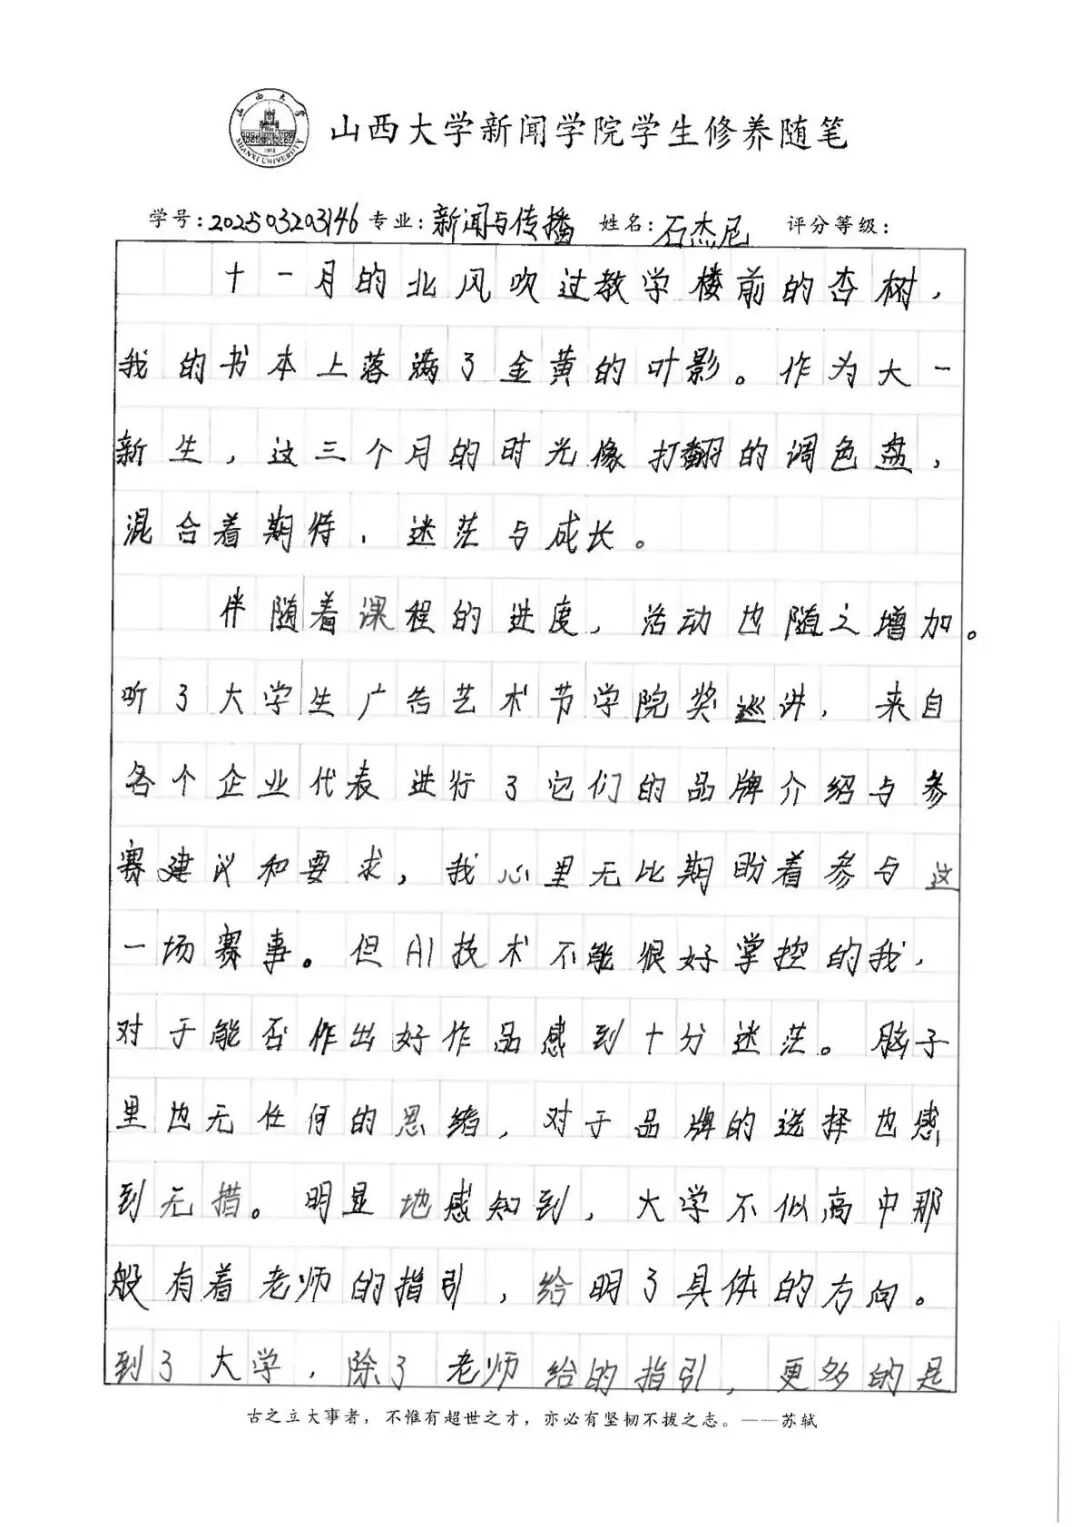 山西大学
SHANXI UNIVERSITY
1902
山西大学新闻学院学生修养随笔
学号:202503203146 专业:新闻与传播 姓名:石杰尼 评分等级:
十一月的北风吹过教学楼前的杏树，
我的书本上落满了金黄的叶影。作为大一
新生，这三个月的时光像打翻的调色盘，
混合着期待、迷茫与成长。
伴随着课程的进度，活动也随之增加。
听了大学生广告艺术节学院奖巡讲，来自
各个企业代表进行了它们的品牌介绍与参
赛建议和要求，我心里无比期盼着参与这
一场赛事。但AI技术不能很好掌控的我，
对于能否作出好作品感到十分迷茫。脑子
里也无任何的思绪，对于品牌的选择也感
到无措。明显地感知到，大学不似高中那
般有着老师的指引，给明了具体的方向。
到了大学，除了老师给的指引，更多的是
古之立大事者，不惟有超世之才，亦必有坚韧不拔之志。——苏轼